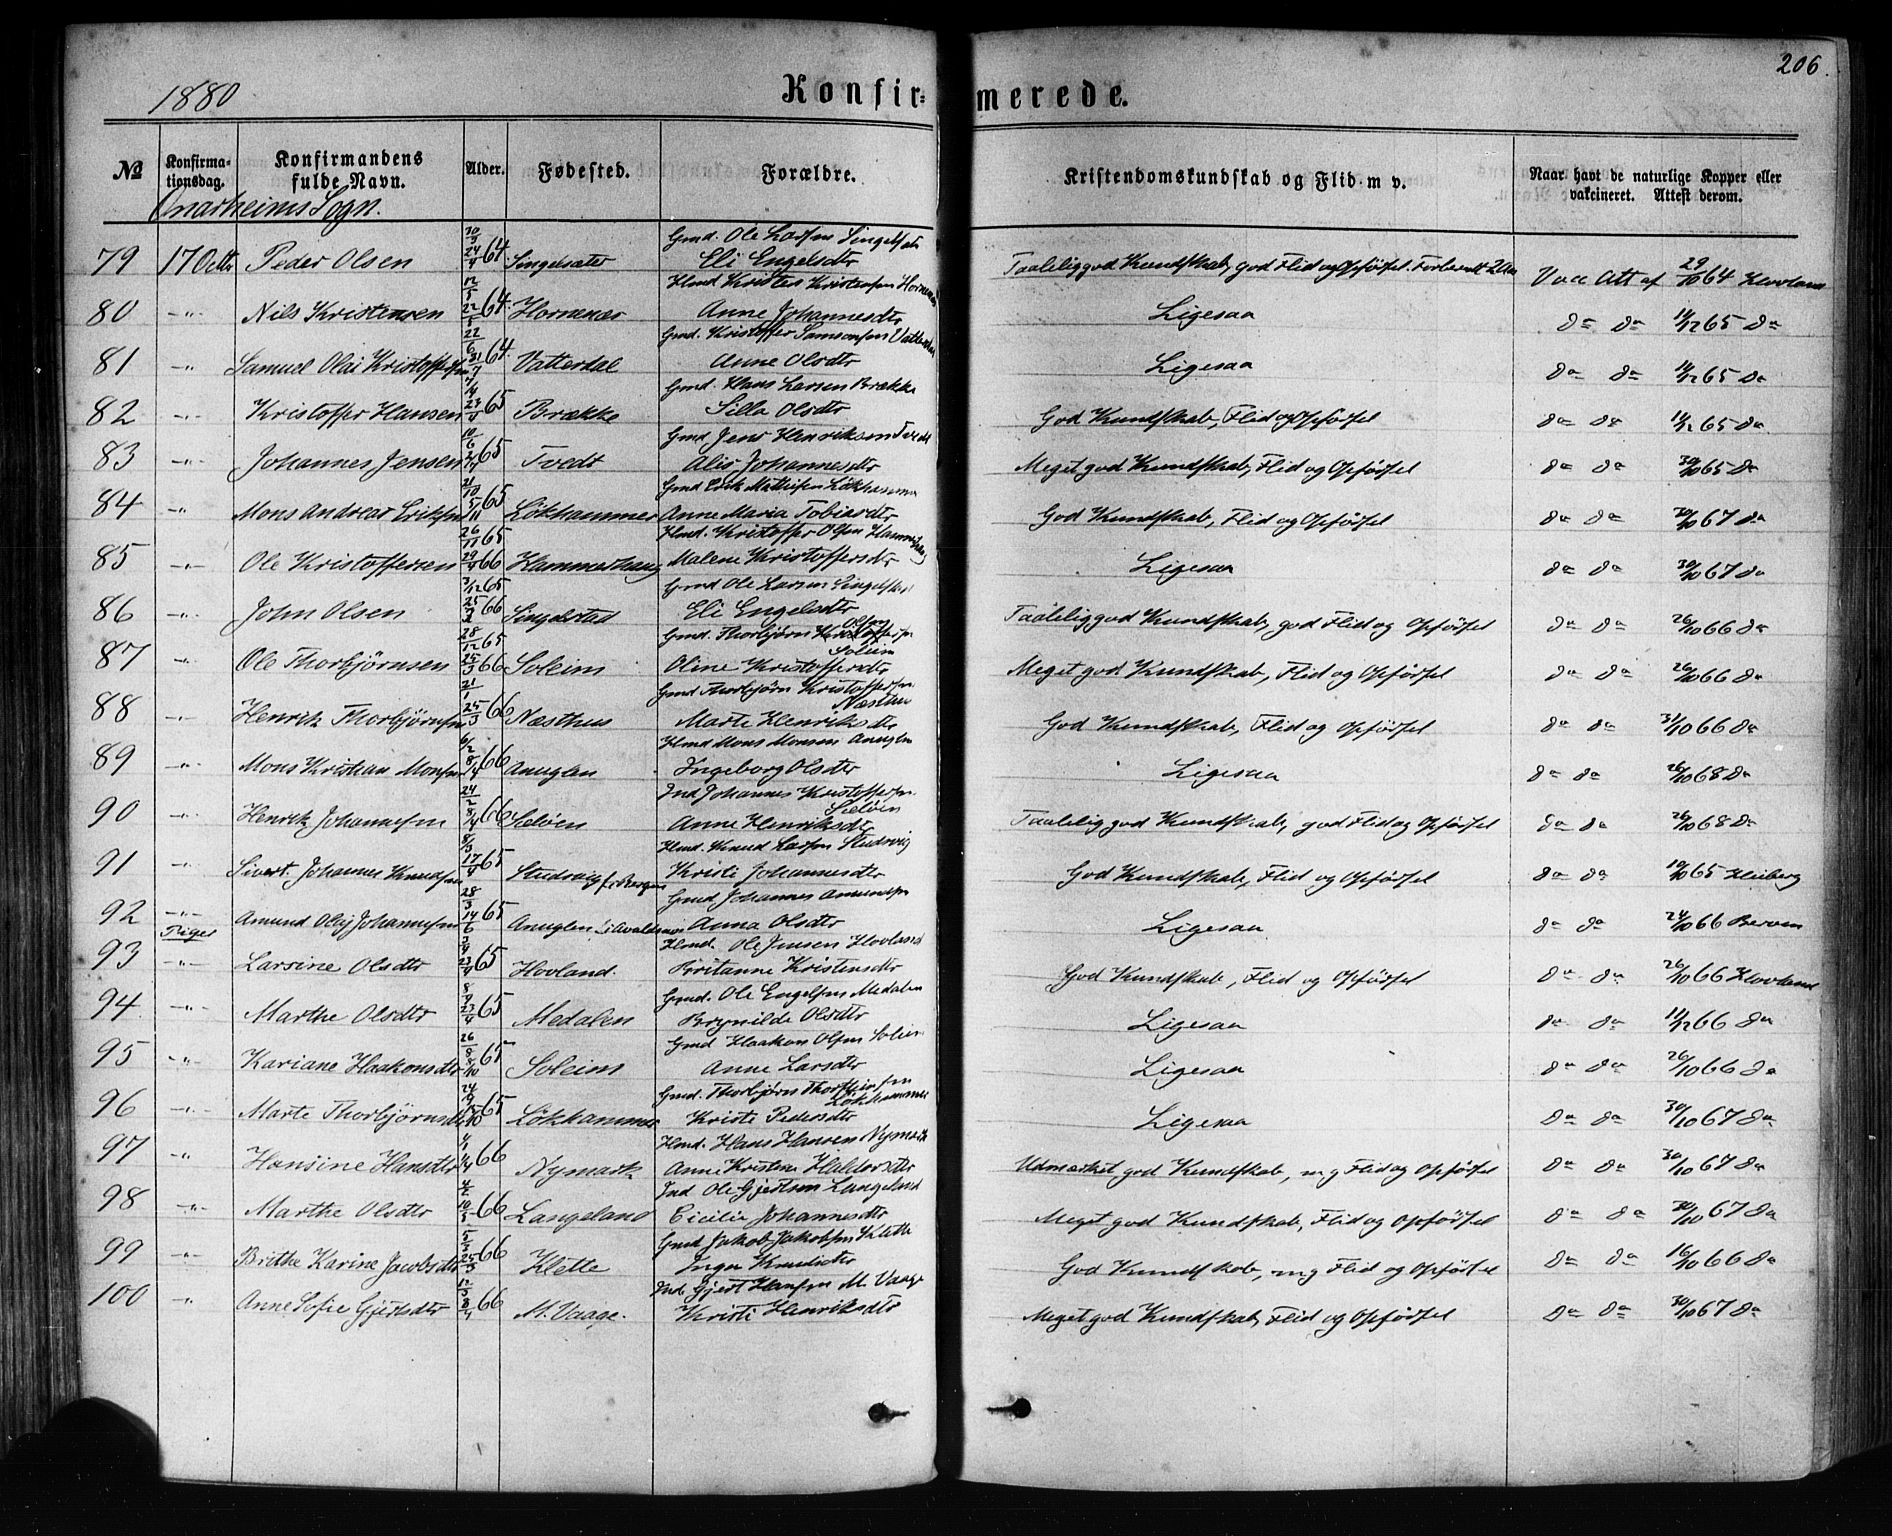 206.
1880
Konfir= merede.
No
Konfirma-
tionsdag.
Konfirmandens
fulde Navn.
Alder.
Fødested.
Forældre.
Kristendomskundskab og Flid m v.
Naar havt de naturlige Kopper eller
vakcineret. Attest derom.
Onarheims Sogn.
Gmd. Ole Larsen
79 17 Octbr Peder Olsen 30/3 24/4 64 Singelsæter Eli Engelsdtr Taalelig god Kundskab, god Flid og Opførsel. Vacc Att af 29/10 64 Hovland
Hmd Kristen Kristensen
80 -"- Nils Kristensen 64 Hornenes Anne Johannesdtr Ligesaa do do 14/12 65 do
Gmd. Kristoffer Samsonsen
81 -"- Samuel Olai Kristoffersen 22/6 31/7 64 Vatterdal Anne Olsdtr Ligesaa do do 14/12 65 do
Gmd. Hans Larsen Brække
82 -"- Kristoffer Hansen 23/4 65 Brække Silla Olsdtr God Kundskab, Flid og Opførsel do do 14/12 65 do
Gmd Jens Henriksen Tvedt
83 -"- Johannes Jensen 10/6 65 Tvedt Alis Johannesdtr Meget god Kundskab, Flid og Opførsel do do 30/10 65 do
Gmd Erik Mathisen Lökhammer
84 -"- Mons Andreas Eriksen 21/10 5/11 65 Lökhammer Anne Maria Tobiasdtr God Kundskab, Flid og Opførsel do do 30/10 67 do
Hmd. Kristoffer Olsen Hammerhaug
85 -"- Ole Kristoffersen 26/11 65 29/4 66 Hammerhaug Malene Kristoffersdtr Ligesaa do do 30/10 67 do
Gmd Ole Larsen
86 -"- John Olsen 3/12 65 25/2 66 Singelstad Eli Engelsdtr Taalelig god Kundskab, god Flid og Opførsel do do 26/10 66 do
Gmd. Thorbjørn Olsen
Soleim
87 -"- Ole Thorbjørnsen 28/12 65 25/3 66 Soleim Oline Kristoffersdtr Meget god Kundskab, Flid og Opførsel do do 26/10 66 do
Gmd Thorbjørn Kristoffersen
Næsthus
88 -"- Henrik Thorbjørnsen 21/1 25/3 66 Næsthus Marte Henriksdtr God Kundskab, Flid og Opførsel do do 31/10 66 do
Hmd Mons Monsen Anuglen
89 -"- Mons Kristian Monsen 6/2 8/4 66 Anuglen Ingeborg Olsdtr Ligesaa do do 26/10 68 do
Ind Johannes Kristoffersen
Seløen
90 -"- Henrik Johannesen 24/2 8/4 66 Seløen Anne Henriksdtr Taalelig god Kundskab, god Flid og Opførsel do do 26/10 68 do
Hmd. Knud Larsen Studsvig
91 -"- Sivert Johannes Knudsen 8/3 17/4 65 Studsvig fr Bergen Kristi Johannesdtr God Kundskab, Flid og Opførsel do do 10/10 65 Heiberg
Gmd Johannes Amundsen
92 -"- Amund Olai Johannesen 28/3 14/6 65 Anuglen Anna Olsdtr Ligesaa do do 24/10 66
Piger
Hmd. Ole Jensen Hovland
93 -"- Larsine Olsdtr 23/4 65 Hovland. Britanne Kristensdtr God Kundskab, Flid og Opførsel do do 26/10 66 Hovland
Gmd. Ole Engelsen Medalen
94 -"- Marthe Olsdtr 23/4 65 Medalen Brynilde Olsdtr Ligesaa do do 11/12 66 do
Gmd Haakon Olsen Soleim
95 -"- Kariane Haakonsdtr 26/8 8/10 65 Soleim Anne Larsdtr Ligesaa do do 26/10 66 do
Gmd. Thorbjørn
Lökhammer
96 -"- Marte Thorbjørnsdtr 24/9 65 Lökhammer Kristi Pedersdtr Ligesaa do do 30/10 67 do
Hmd. Hans Hansen Nymark
97 -"- Hansine Hansdtr 66 Nymark Anne Kristine Haldorsdtr Udmærket god Kundskab, mg Flid og Opførsel do do 30/10 67 do
Ind Ole Gjertsen Langeland
98 -"- Marthe Olsdtr 4/2 66 Langeland Cicilie Johannesdtr Meget god Kundskab, Flid og Opførsel do do 30/10 67 do
Gmd Jakob Jakobsen Klette
99 -"- Brithe Karine Jacobsdtr 25/3 66 Klette Inger Knudsdtr God Kundskab, mg Flid og Opførsel do do 16/10 66 do
Ind Gjert Hansen M. Vaage
100 -"- Anne Sofie Gjertsdtr 12/3 66 M. Vaage. Kristi Henriksdtr Meget god Kundskab, Flid og Opførsel do do 30/10 67 do